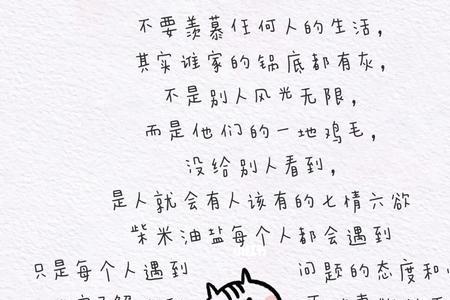 不要羡慕任何人的生活,
其实谁家的锅底都有灰,
不是别人风光无限,
而是他们的一地鸡毛,
没给别人看到,
是人就会有人该有的七情六欲
柴米油盐每个人都会遇到
只是每个人遇到 问题的态度和